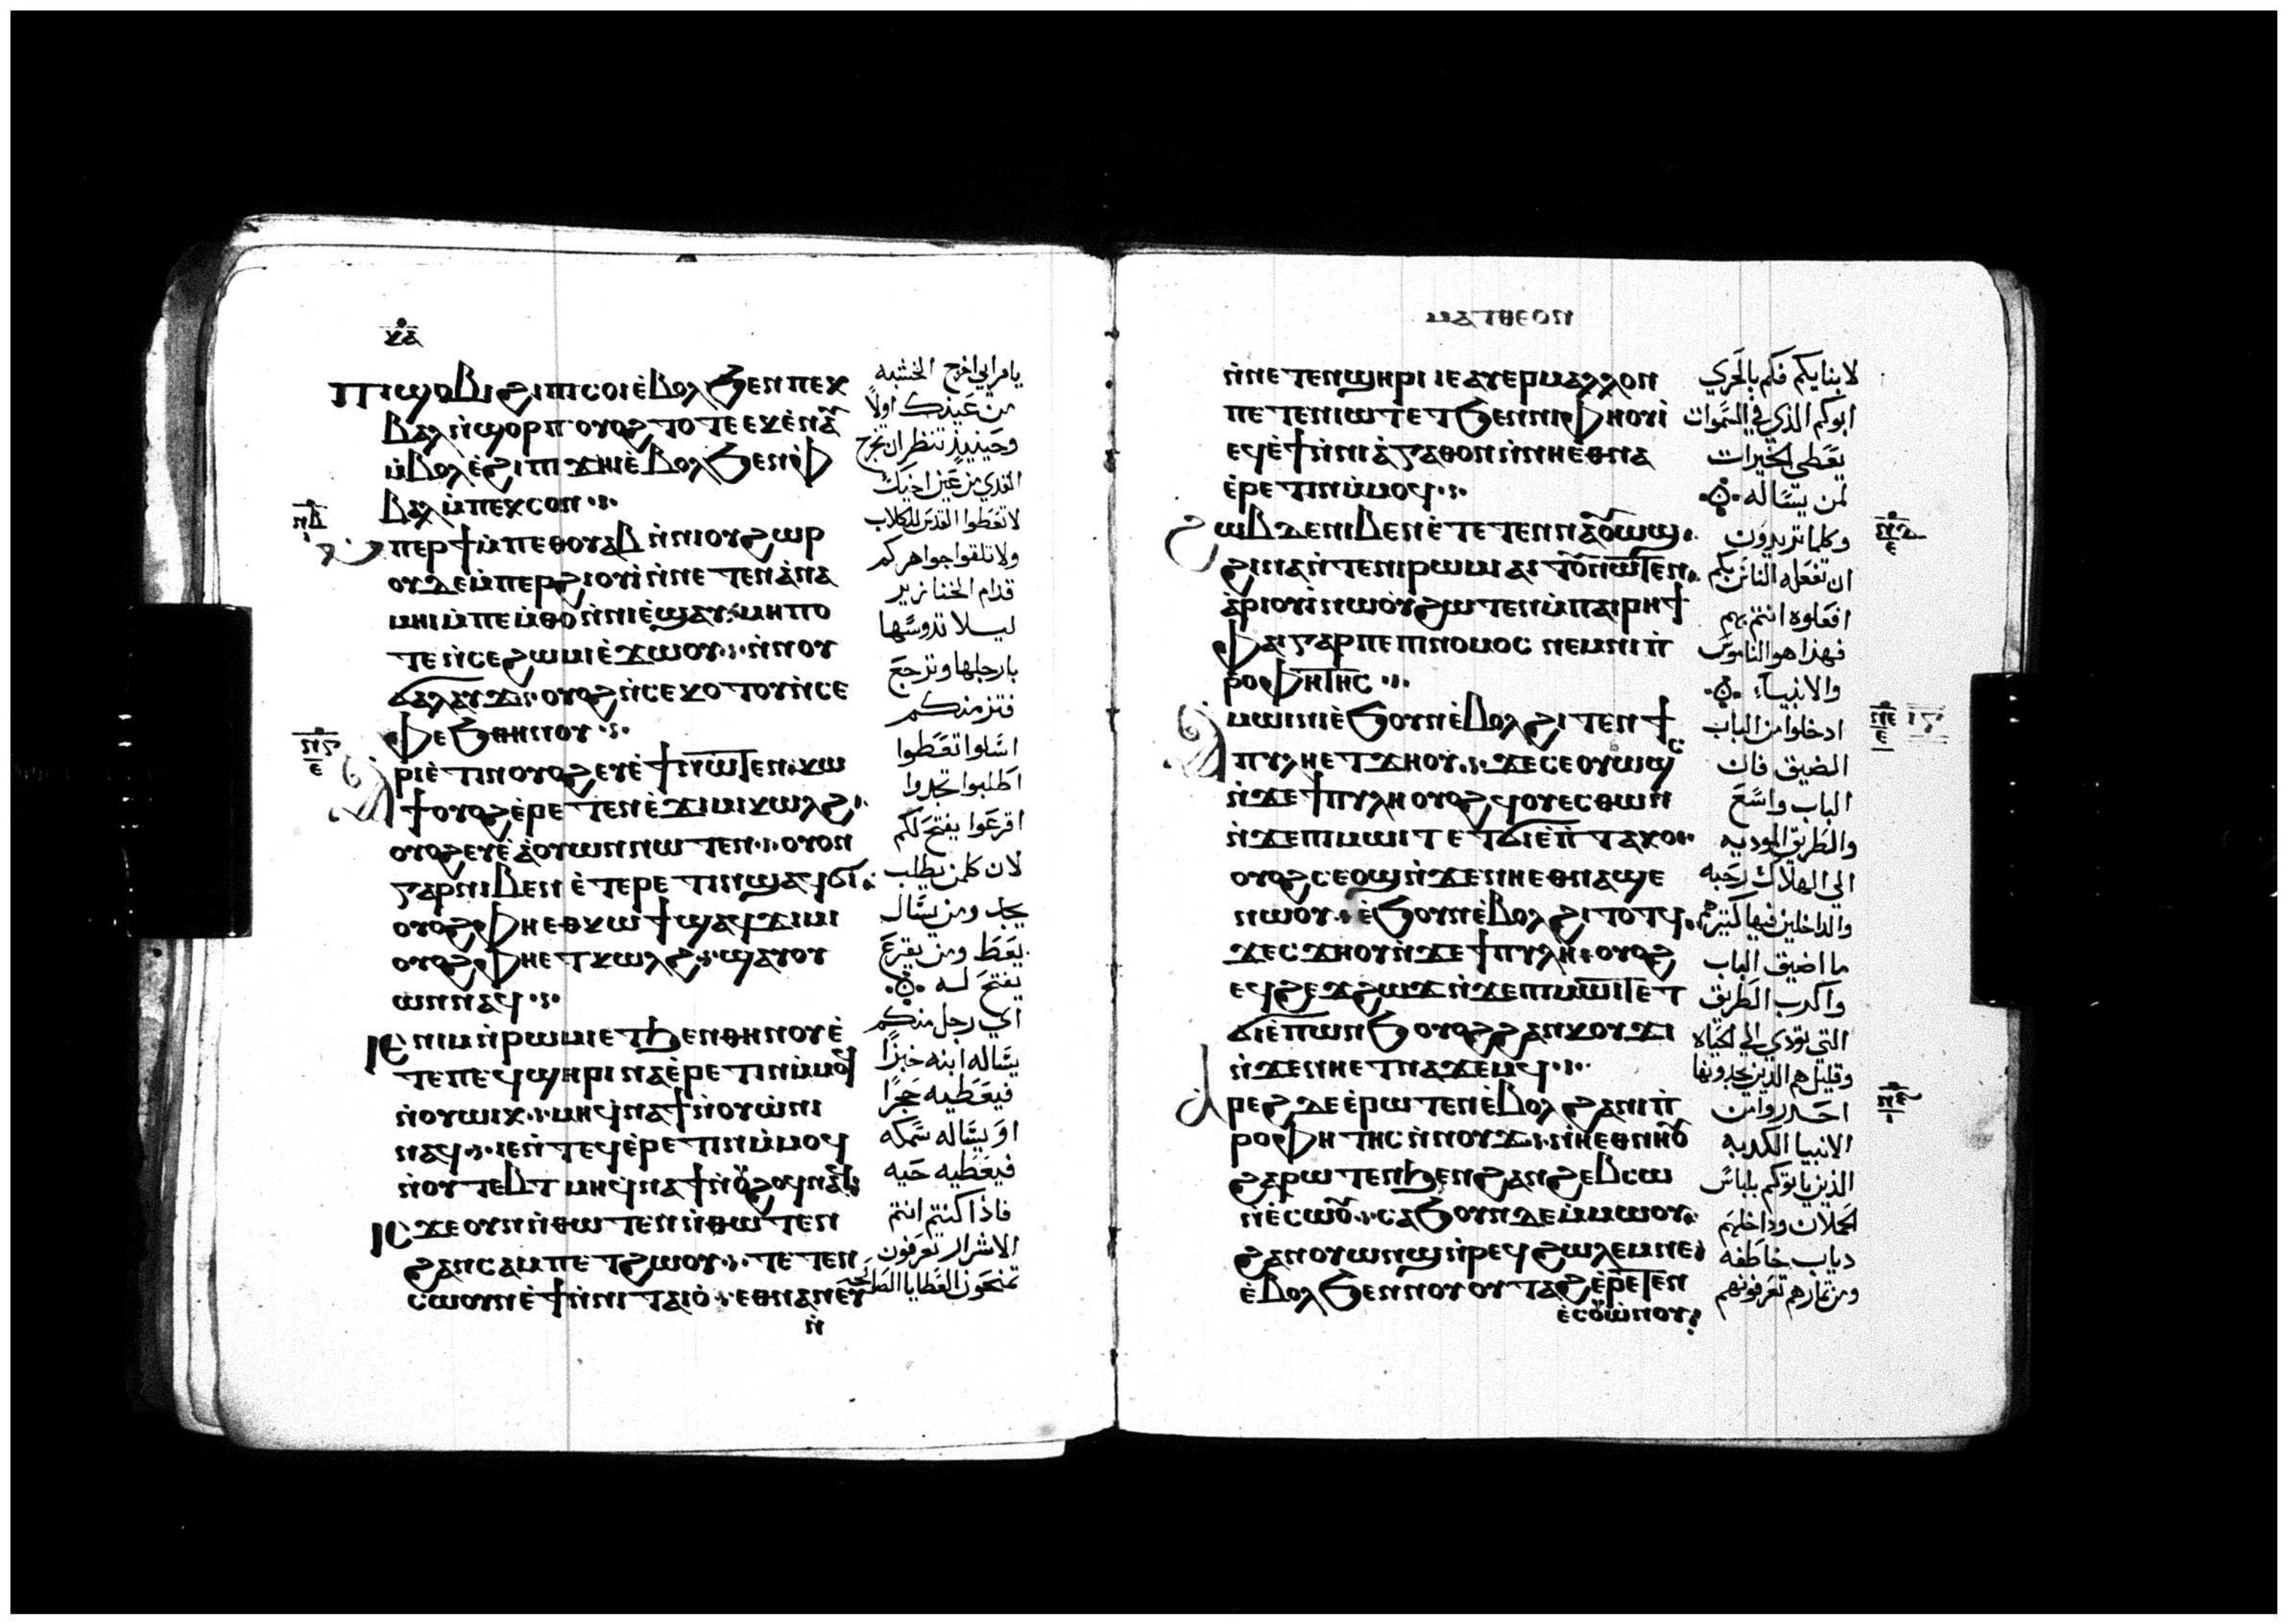 ⲕⲁ
ⲡⲓϣⲟⲃⲓ ϩⲓⲡⲓⲥⲟⲓ ⲉ̀ⲃⲟⲗ ϧⲉⲛ ⲡⲉⲕ
ⲃⲁⲗ ⲛ̀ϣⲟⲣⲡ ⲟⲩⲟϩ ⲧⲟⲧⲉ ⲉⲕⲉ̀ⲛⲁⲩ
ⲙ̀ⲃⲟⲗ ⲉ̀ϩⲓ ⲡⲓϫⲏⲓ ⲉ̀ⲃⲟⲗ ϧⲉⲛ ⲫ
ⲃⲁⲗ ⲙ̀ⲡⲉⲕⲥⲟⲛ
ⲙⲡⲉⲣϯ ⲙ̀ⲡⲉⲑⲟⲩⲁⲃ ⲛ̀ⲛⲓⲟⲩϩⲱⲣ
ⲟⲩⲇⲉ ⲙ̀ⲡⲉⲣϩⲓⲟⲩⲓ ⲛ̀ⲛⲉⲧⲉⲛⲁ̀ⲛⲁ
ⲙⲏⲓ ⲙ̀ⲡⲉⲙ̀ⲑⲟ ⲛ̀ⲛⲓⲉ̀ϣⲁⲩ ⲙⲏⲡⲟ
ⲧⲉ ⲛ̀ⲥⲉϩⲱⲙⲓ ⲉ̀ϫⲱⲟⲩ ⲛ̀ⲛⲟⲩ
ϭⲁⲗⲁⲩϫ ⲟⲩⲟϩ ⲛ̀ⲥⲉⲕⲟⲧⲟⲩ ⲛ̀ⲥⲉ
ⲫⲉϧ ⲑⲏⲛⲟⲩ
ⲁⲣⲓⲉ̀ⲧⲓⲛ ⲟⲩⲟϩ ⲉⲩⲉ̀ϯ ⲛⲱⲧⲉⲛ ⲕⲱ
ϯ ⲟⲩⲟϩ ⲉ̀ⲣⲉⲧⲉⲛⲉ̀ϫⲓⲙⲓ ⲕⲱⲗϩ
ⲟⲩⲟϩ ⲉⲩⲉ̀ⲁ̀ⲟⲩⲱⲛ ⲛⲱⲧⲉⲛ ⲟⲩⲟⲛ
ⲅⲁⲣ ⲛⲓⲃⲉⲛ ⲉ̀ⲧⲉⲣⲉⲧⲓⲛ ϣⲁϥϭⲓ
ⲟⲩⲟϩ ⲫⲏⲉⲑⲕⲱϯ ϣⲁϥϫⲓⲙⲓ
ⲟⲩⲟϩ ⲫⲏⲉⲧⲕⲱⲗϩ ϣⲁⲩⲟⲩ
ⲱⲛ ⲛⲁϥ
ⲓⲉ ⲛⲓⲙ ⲛ̀ⲣⲱⲙⲓ ⲉⲧϧⲉⲛ ⲑⲏⲛⲟⲩ ⲉ̀
ⲧⲉ ⲡⲉϥϣⲏⲣⲓ ⲛⲁⲉ̀ⲣⲉⲧⲓⲛ ⲙ̀ⲙⲟϥ
ⲛ̀ⲟⲩⲱⲓⲕ ⲙⲏ ϥⲛⲁϯ ⲛ̀ⲟⲩⲱ̀ⲛⲓ
ⲛⲁϥ ⲓⲉ ⲛ̀ⲧⲉϥⲉ̀ⲣⲉⲧⲓⲛ ⲙ̀ⲙⲟϥ
ⲛ̀ⲟⲩⲧⲉⲃⲧ ⲙⲏ ϥⲛⲁϯ ⲛ̀ⲟⲩϩⲟϥ ⲛⲁϥ
ⲓⲥϫⲉ ⲟⲩⲛ ⲛ̀ⲑⲱⲧⲉⲛ ⲛ̀ⲑⲱⲧⲉⲛ
ϩⲁⲛⲥⲁⲙⲡⲉⲧϩⲱⲟⲩ ⲧⲉⲧⲉⲛ
ⲥⲱⲟⲩⲛ ⲉ̀ϯ ⲛ̀ⲛⲓⲧⲁⲓⲟ̀ ⲉⲑⲛⲁⲛⲉⲩ
ⲛ̀
يا مرايي اخرج الخشبه
من عينك اولاً
وحينيذ تنظر ان تخرج
القدي من عين اخيك
لا تعطوا القدس للكلاب
ولا تلقوا جواهركم
قدام الخنازير
ليلا تدوسها
بارجلها وترجع
فتزمنكم
اسالوا تعطوا
اطلبوا تجدوا
اقرعوا يفتح لكم
لان كلمن يطلب
يجد ومن يسال
يعط ومن يقرع
يفتح له
اي رجل منكم
يساله ابنه خبزًا
فيعطيه حجرًا
او يساله سمكه
فيعطيه حيه
فاذا كنتم انتم
الاشرار تعرفون
تمنحون العطايا الصالحه
ⲙⲁⲧⲑⲉⲟⲛ
ⲛ̀ⲛⲉⲧⲉⲛϣⲏⲣⲓ ⲓⲉ ⲁⲩⲉⲣ ⲙⲁⲗⲗⲟⲛ
ⲡⲉⲧⲉⲛⲓⲱⲧ ⲉⲧϧⲉⲛ ⲛⲓⲫⲏⲟⲩⲓ
ⲉϥⲉ̀ϯ ⲛ̀ⲛⲓⲁ̀ⲅⲁⲑⲟⲛ ⲛ̀ⲛⲏⲉ̀ⲑⲛⲁ
ⲉ̀ⲣⲉⲧⲓⲛ ⲙ̀ⲙⲟϥ
ϩⲱⲃ ⲇⲉ ⲛⲓⲃⲉⲛ ⲉ̀ⲧⲉⲧⲉⲛⲛⲁⲟⲩⲱϣ
ϩⲓⲛⲁ ⲛ̀ⲧⲉ ⲛⲓⲣⲱⲙⲓ ⲁⲓⲧⲟⲩ ⲛⲱⲧⲉⲛ
ⲁ̀ⲣⲓⲟⲩⲓ ⲛⲱⲟⲩ ϩⲱⲧⲉⲛ ⲙ̀ⲡⲁⲓⲣⲏϯ
ⲫⲁⲓ ⲅⲁⲣ ⲡⲉ ⲡⲓⲛⲟⲙⲟⲥ ⲛⲉⲙ ⲛⲓⲡ̀
ⲣⲟⲫⲏⲧⲏⲥ
ⲁⲙⲱⲓⲛⲓ ⲉ̀ϧⲟⲩⲛ ⲉ̀ⲃⲟⲗ ϩⲓⲧⲉⲛ ϯ
ⲡⲩⲗⲏ ⲉⲧϫⲏⲟⲩ ϫⲉ ⲥⲉⲟⲩⲱϣⲥ
ⲛ̀ϫⲉ ϯⲡⲩⲗⲏ ⲟⲩⲟϩ ϥⲟⲩⲉⲥⲑⲱⲛ
ⲛ̀ϫⲉ ⲡⲓⲙⲱⲓⲧ ⲉⲧϭⲓ ⲉ̀ⲡ̀ⲧⲁⲕⲟ
ⲟⲩⲟϩ ⲥⲉⲟϣ ⲛ̀ϫⲉ ⲛⲏⲉⲑⲛⲁϣⲉ
ⲛⲱⲟⲩ ⲉ̀ϧⲟⲩⲛ ⲉ̀ⲃⲟⲗ ϩⲓⲧⲟⲧϥ
ϫⲉ ⲥϫⲏⲟⲩ ⲛ̀ϫⲉ ϯⲡⲩⲗⲏ ⲟⲩⲟϩ
ⲉϥϩⲉϫϩⲱϫ ⲛ̀ϫⲉ ⲡⲓⲙⲱⲓⲧ ⲉⲧ
ϭⲓ ⲉ̀ⲡⲱⲛϧ ⲟⲩⲟϩ ϩⲁⲛⲕⲟⲩϫⲓ
ⲛ̀ϫⲉ ⲛⲏⲉⲧⲛⲁϫⲉⲙϥ
ⲁⲣⲉϩ ⲇⲉ ⲉ̀ⲣⲱⲧⲉⲛ ⲉ̀ⲃⲟⲗ ϩⲁ ⲛⲓⲡ̀
ⲣⲟⲫⲏⲧⲏⲥ ⲛ̀ⲛⲟⲩϫ ⲛⲏⲉⲑⲛⲏⲟⲩ
ϩⲁⲣⲱⲧⲉⲛ ϧⲉⲛ ϩⲁⲛϩⲉⲃⲥⲱ
ⲛ̀ⲉ̀ⲥⲱⲟⲩ ⲥⲁϧⲟⲩⲛ ⲇⲉ ⲙ̀ⲙⲱⲟⲩ
ϩⲁⲛⲟⲩⲱⲛϣ ⲛ̀ⲣⲉϥϩⲱⲗⲉⲙ ⲛⲉ
ⲉ̀ⲃⲟⲗ ϧⲉⲛ ⲛⲟⲩⲟⲩⲧⲁϩ ⲉ̀ⲣⲉⲧⲉⲛ
ⲉ̀ⲥⲟⲩⲱⲛⲟⲩ
لابنايكم فكم بالحري
ابوكم الذي في السموات
يعطي الخيرات
لمن يساله
وكلما تريدون
ان تفعله الناس بكم
افعلوه انتم بهم
فهذا هو الناموس
والانبياء
ادخلوا من الباب
الضيق فان
الباب واسع
والطريق الموديه
الي الهلاك رحبه
والداخلين فيها كثير هم
ما اضيق الباب
واكرب الطريق
التي تؤدي الي الحياه
وقليل هم الذين يجدونها
احذروا من
الانبيا الكدبه
الذين ياتوكم بلباس
الحملان وداخلهم
دياب خاطفه
ومن ثمارهم تعرفونهم